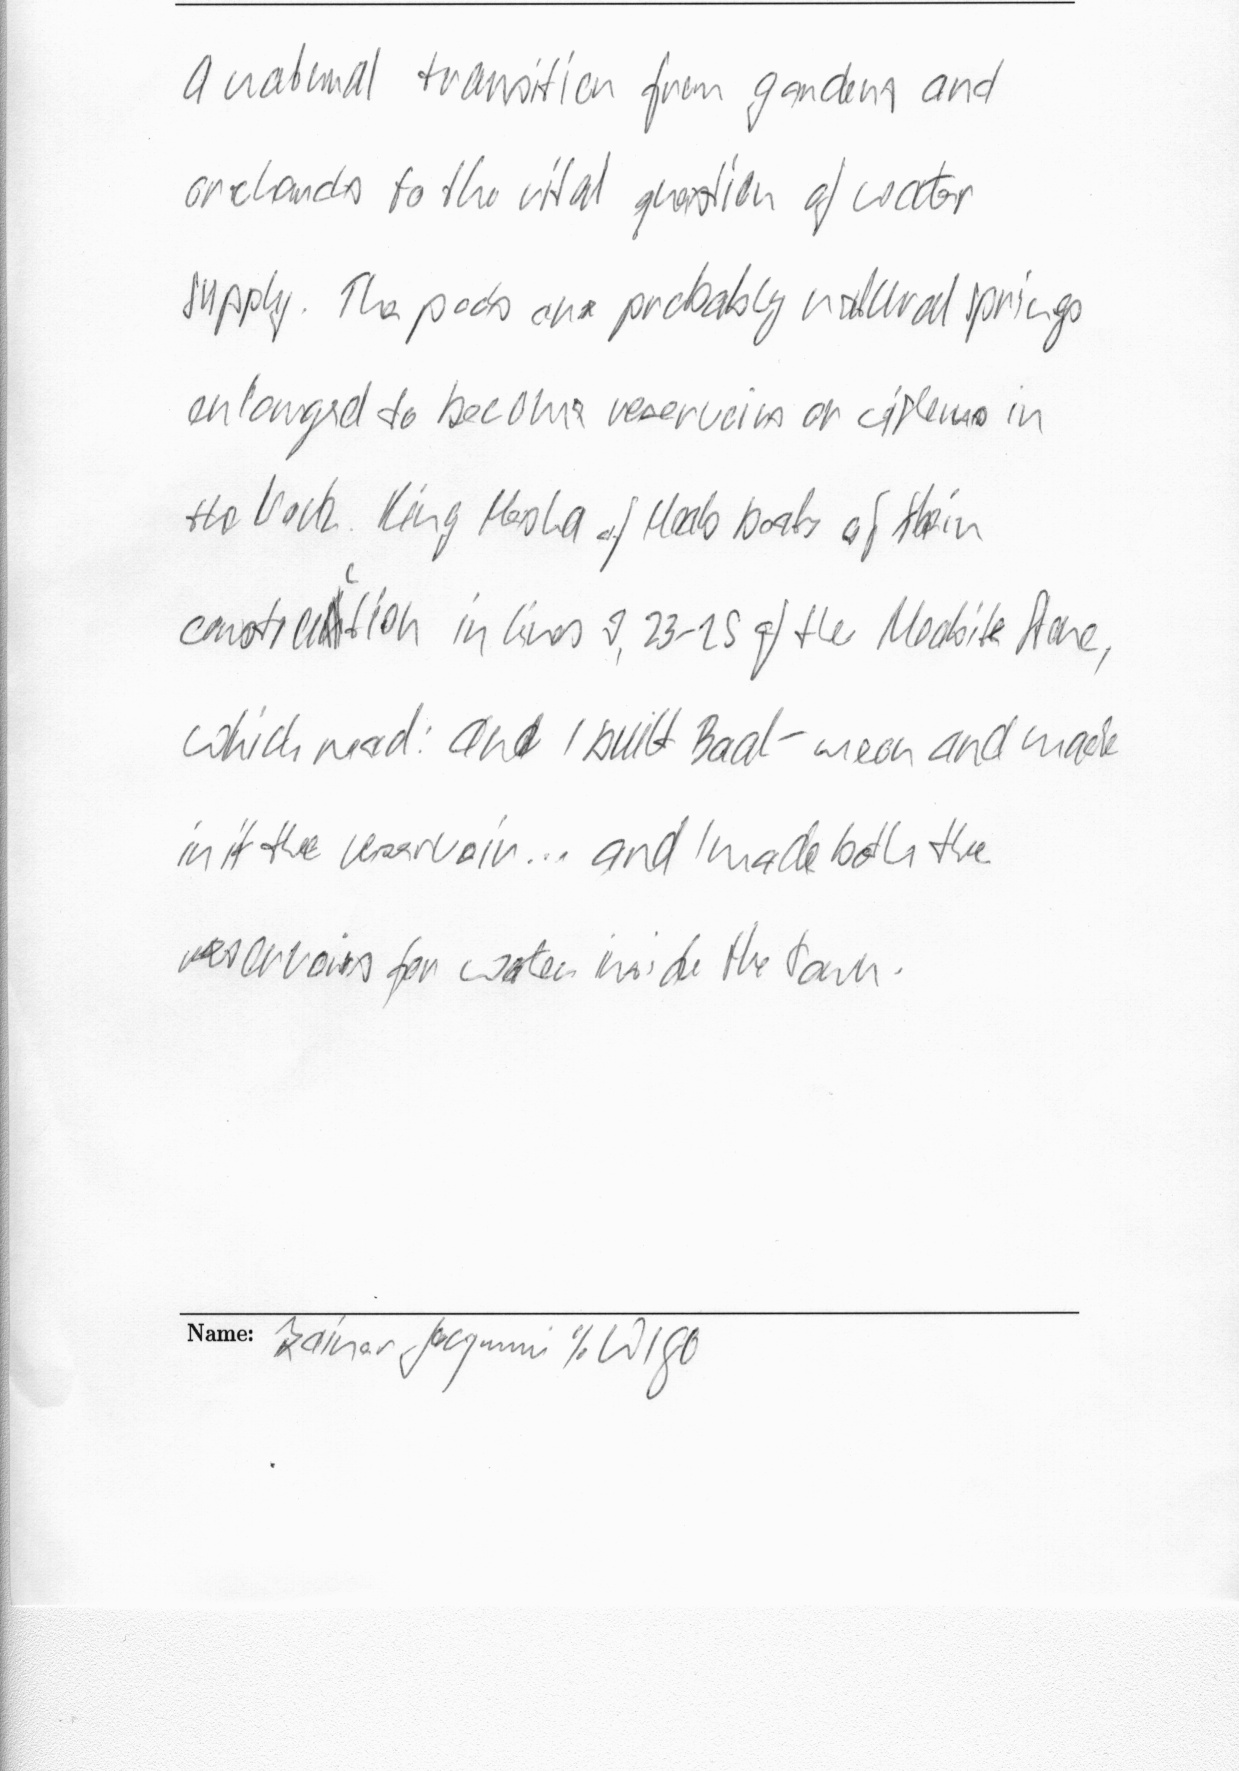 A natural transition from gardens and
orchards to the vital question of water
supply. The pools are probably natural springs
enlarged to become reservoirs or cisterns in
the rock. King Mesha of Moab boats of their
construction in lines 9, 23-25 of the Moabite Stone,
which read: And I built Baal-meon and made
in it the reservoir... and I made both the
reservoirs for water inside the town.
Name: